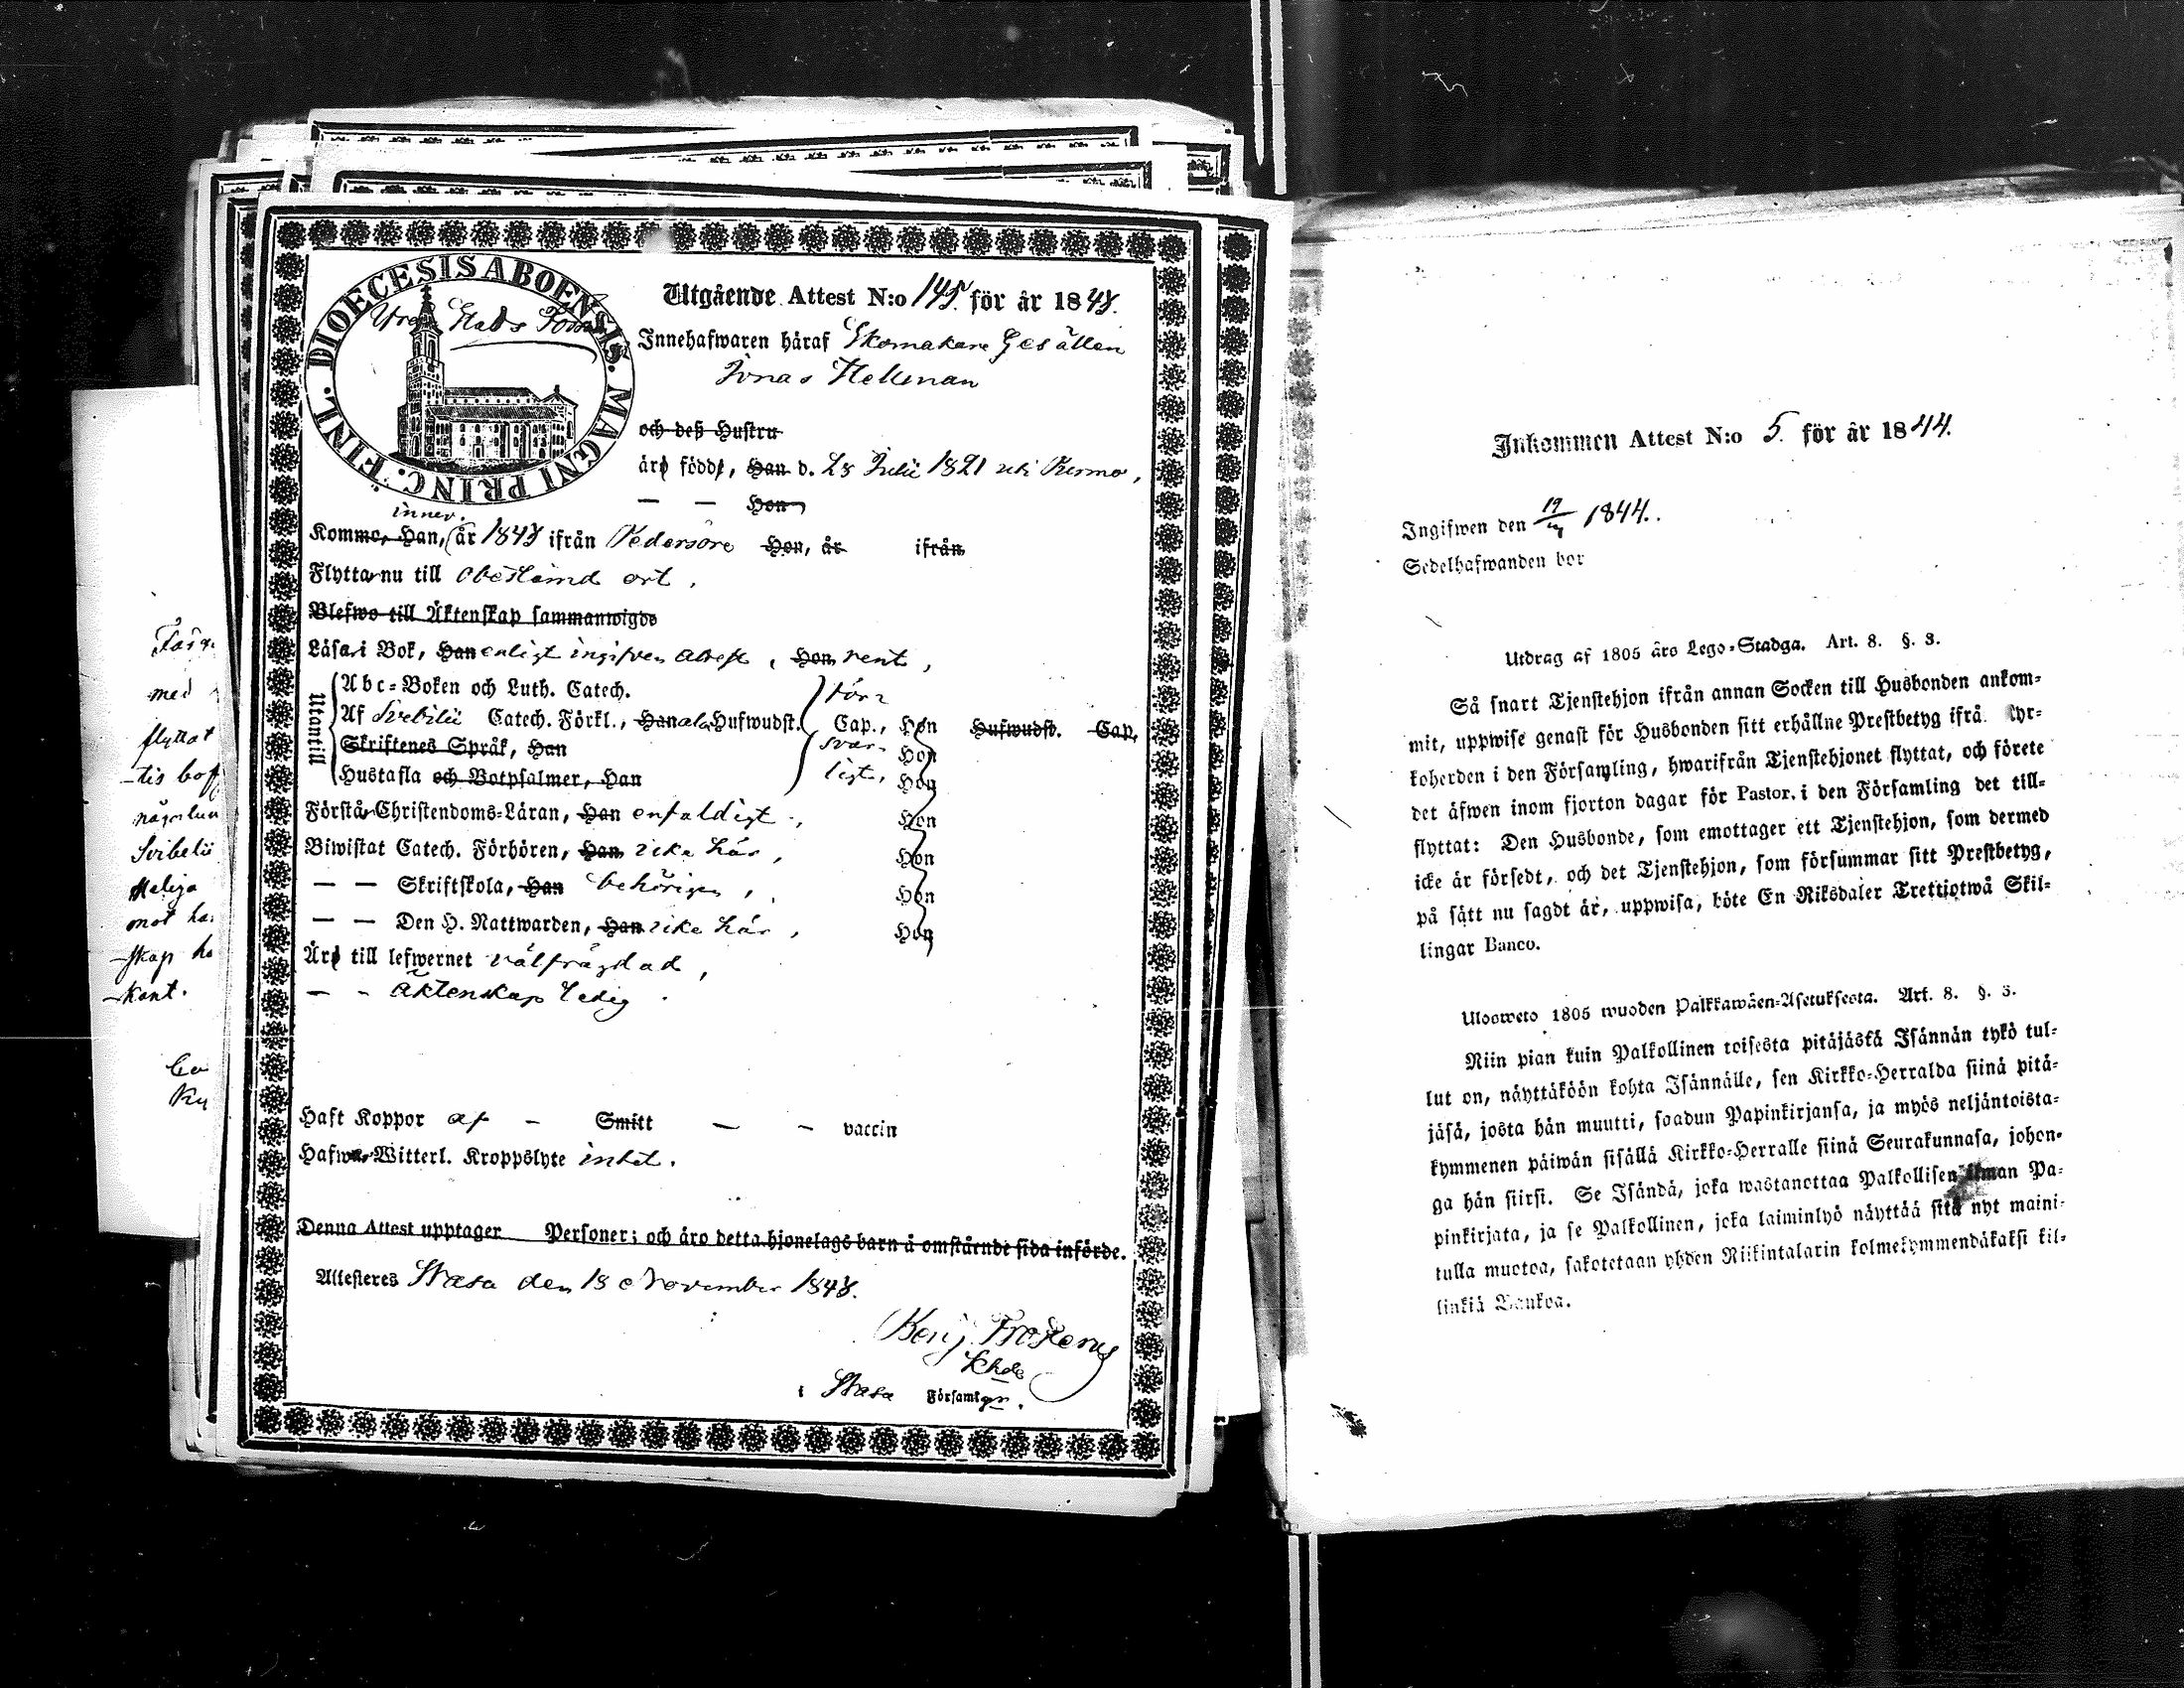 DIOECESIS ABOENSIS. MAGNI PRINC. FINL.
Utgående Attest N:o 145. för år 1843.
Innehafwaren häraf Skomakare Gesällen
Jonas Hellman
och deß Hustru
äro födde, Han d. 28 Julii 1821 uti Kermo,
— — Hon
innev.
Kommo, Han, år 1843 ifrån Pedersöre Hon, år ifrån
Flytta nu till obestämd ort.
Blefwo till Äktenskap sammanwigde
Läsa i Bok, Han enligt ingifven attest, Hon rent,
Utantill
Abc-Boken och Luth. Catech.
Af Svebilii Catech. Förkl., Han alla Hufwudst. Cap., Hon Hufwudst. Cap.
Skriftenes Språk, Han svår- Hon
Hustafla och Botpsalmer, Han ligt, Hon
Förstå Christendoms-Läran, Han enfaldigt, Hon
Biwistat Catech. Förhören, Han icke här, Hon
— — Skriftskola, Han behörigen, Hon
— — Den H. Nattwarden, Han icke här, Hon
Äro till lefwernet välfrägdad,
— - äktenskap ledig.
Haft Koppor af - Smitt — - vaccin
Hafwa Witterl. Kroppslyte intet.
Denna Attest upptager Personer; och äro detta hjonelags barn å omstående sida införde.
Attesteras Wasa den 18 November 1843.
Benj. Frosterus
Khde
i Wasa Församlgn.
Fär
med
flyttat
-tis bof
någorlun
Svibelii
Heliga
mot ha
-skap ha
-kant.
Ku
Inkommen Attest N:o 5. för år 1844.
Ingifwen den 1844.
Sedelhafwanden bor
Utdrag af 1805 års Lego-Stadga. Art. 8. §. 3.
Så snart Tjenstehjon ifrån annan Socken till Husbonden ankom-
mit, uppwise genast för Husbonden sitt erhållne Prestbetyg ifrå Kyr-
koherden i den Församling, hwarifrån Tjenstehjonet flyttat, och förete
det äfwen inom fjorton dagar för Pastor. i den Församling det till-
flyttat: Den Husbonde, som emottager ett Tjenstehjon, som dermed
icke är försedt, och det Tjenstehjon, som försummar sitt Prestbetyg,
på sätt nu sagdt är, uppwisa, böte En Riksdaler Trettiotwå Skil-
lingar Banco.
Ulosweto 1805 wuoden Palkkawäen-Asetuksesta. Art. 8. §. 3.
Niin pian kuin Palkollinen toisesta pitäjästä Isännän tykö tul-
lut on, näyttäköön kohta Isännälle, sen Kirkko-Herralda siinä pitä-
jäsä, josta hän muutti, saadun Papinkirjansa, ja myös neljäntoista-
kymmenen päiwän sisällä Kirkko-Herralle siinä Seurakunnasa, johon-
ga hän siirsi. Se Isändä, joka wastanottaa Palkollisen ilman Pa-
pinkirjata, ja se Palkollinen, joka laiminlyö näyttää sitä nyt maini-
tulla muotoa, sakotetaan yhden Riikintalarin kolmekymmendäkaksi kil-
linkiä Bankoa.